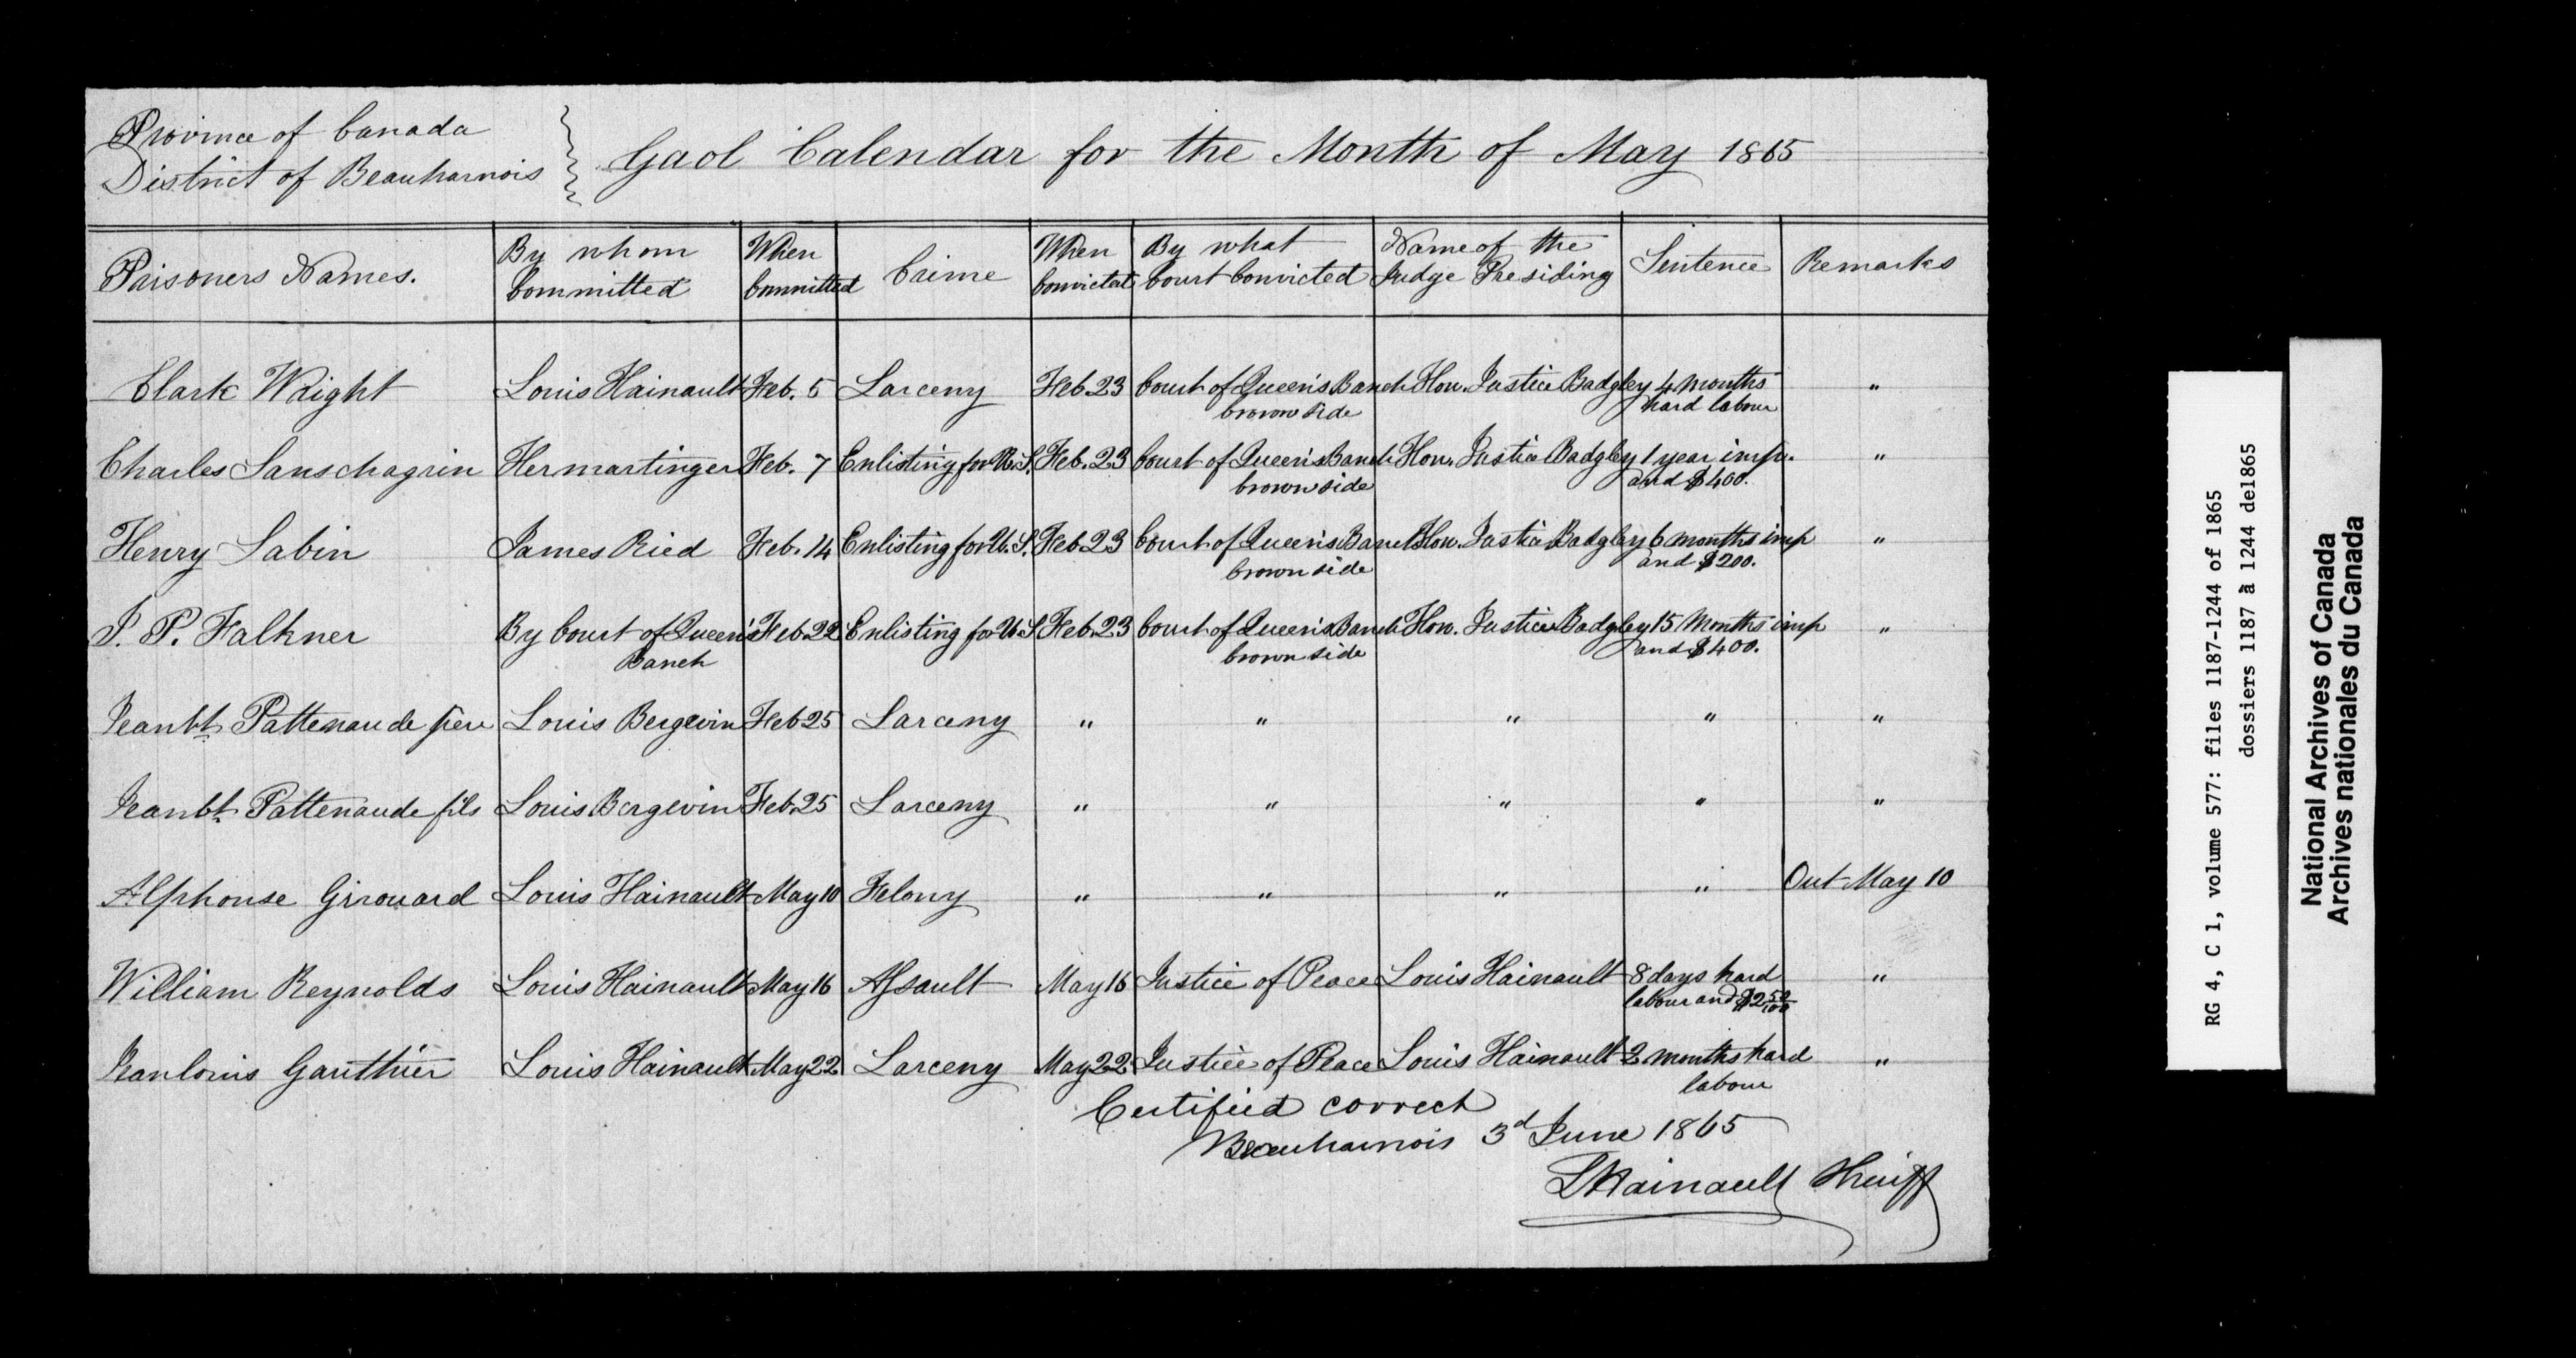 Province of Canada
District of Beauharnois
Gaol Calendar for the Month of May 1865
Prisoners Names. | By whom Committed | When Committed | Crime | When Convicted | By what Court Convicted | Name of the Judge Presiding | Sentence | Remarks
Clark Wright | Louis Hainault | Feb. 5 | Larceny | Feb. 23 | Court of Queen's Banch | Hon. Justice Badgley | 4 months | "
crown side | hard labour
Charles Sanschagrin | Hermartinger | Feb. 7 | Enlisting for U.S. | Feb. 23 | Court of Queen's Banch | Hon. Justice Badgley | 1 year imp. | "
crown side | and $400.
Henry Sabin | James Ried | Feb. 14 | Enlisting for U.S. | Feb. 23 | Court of Queen's Banch | Hon. Justice Badgley | 6 months imp | "
crown side | and $200.
P. Falkner | By Court of Queen's | Feb. 22 | Enlisting for U.S | Feb. 23 | Court of Queen's Banch | Hon. Justice Badgley | 15 Months imp | "
Banch | crown side | and $400.
Jeanbt. Pattenaude père | Louis Bergevin | Feb 25 | Larceny | " | " | " | " | "
Jeanbt. Pattenaude fils | Louis Bergevin | Feb. 25 | Larceny | " | " | " | " | "
Alphonse Girouard | Louis Hainault | May 10 | Felony | " | " | " | " | Out May 10
William Reynolds | Louis Hainault | May 16 | Assault | May 16 | Justice of Peace | Louis Hainault | 8 days hard | "
labour and $2 50/100
Jeanlouis Gauthier | Louis Hainault | May 22 | Larceny | May 22 | Justice of Peace | Louis Hainault | 2 months hard | "
labour
Certified correct
Beauharnois 3d June 1865
L Hainault Sheriff
RG 4, C 1, volume 577: files 1187-1244 of 1865
dossiers 1187 à 1244 de1865
National Archives of Canada
Archives nationales du Canada